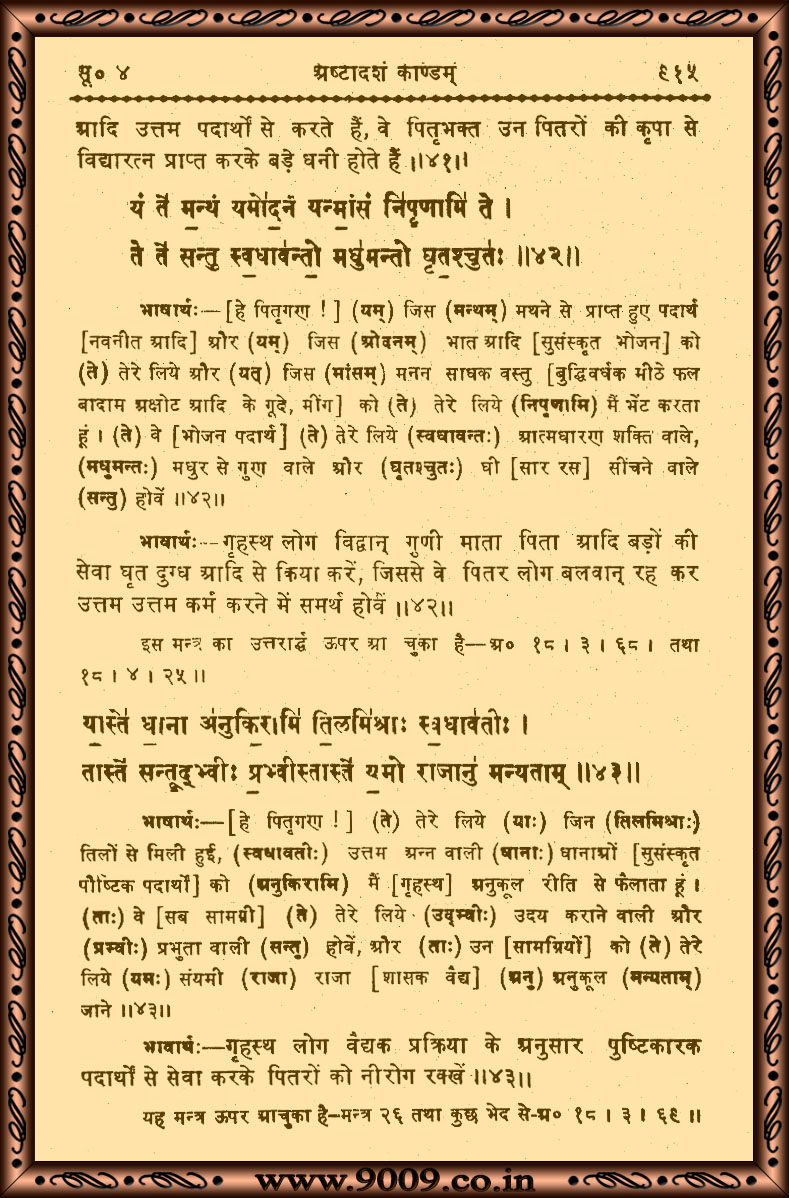 सू० ४ अष्टादशं काण्डम् ९१५
आदि उत्तम पदार्थों से करते हैं, वे पितृभक्त उन पितरों की कृपा से
विद्यारत्न प्राप्त करके बड़े धनी होते हैं ॥४१॥
यं ते॑ म॒न्थं यमो॑द॒नं यन्मां॒सं नि॑पृ॒णामि॑ ते ।
ते ते॑ सन्तु स्व॒धाव॑न्तो॒ मधु॑मन्तो घृत॒श्चुतः॑ ॥४२॥
भाषार्थः—[हे पितृगण !] (यम्) जिस (मन्थम्) मथने से प्राप्त हुए पदार्थ
[नवनीत आदि] और (यम्) जिस (ओदनम्) भात आदि [सुसंस्कृत भोजन] को
(ते) तेरे लिये और (यत्) जिस (मांसम्) मनन साधक वस्तु [बुद्धिवर्धक मीठे फल
बादाम अक्षोट आदि के गूदे, मींग] को (ते) तेरे लिये (निपृणामि) मैं भेंट करता
हूं । (ते) वे [भोजन पदार्थ] (ते) तेरे लिये (स्वधावन्तः) आत्मधारण शक्ति वाले,
(मधुमन्तः) मधुर से गुण वाले और (घृतश्चुतः) घी [सार रस] सींचने वाले
(सन्तु) होवें ॥४२॥
भावार्थः--गृहस्थ लोग विद्वान् गुणी माता पिता आदि बड़ों की
सेवा घृत दुग्ध आदि से किया करें, जिससे वे पितर लोग बलवान् रह कर
उत्तम उत्तम कर्म करने में समर्थ होवें ॥४२॥
इस मन्त्र का उत्तरार्द्ध ऊपर आ चुका है—अ० १८ । ३ । ६८ । तथा
१८ । ४ । २५ ॥
या॒स्ते॑ धा॒ना अ॑नुकि॒रामि॑ ति॒लमि॑श्राः स्व॒धाव॑तीः ।
तास्ते॑ सन्तू॒द्भ्वीः प्र॒भ्वीस्तास्ते॑ य॒मो राजानु॑ मन्यताम् ॥४३॥
भाषार्थः—[हे पितृगण !] (ते) तेरे लिये (याः) जिन (तिलमिश्राः)
तिलों से मिली हुई, (स्वधावतीः) उत्तम अन्न वाली (धानाः) धानाओं [सुसंस्कृत
पौष्टिक पदार्थों] को (अनुकिरामि) मैं [गृहस्थ] अनुकूल रीति से फैलाता हूं ।
(ताः) वे [सब सामग्री] (ते) तेरे लिये (उद्भ्वीः) उदय कराने वाली और
(प्रभ्वीः) प्रभुता वाली (सन्तु) होवें, और (ताः) उन [सामग्रियों] को (ते) तेरे
लिये (यमः) संयमी (राजा) राजा [शासक वैद्य] (अनु) अनुकूल (मन्यताम्)
जाने ॥४३॥
भावार्थः—गृहस्थ लोग वैद्यक प्रक्रिया के अनुसार पुष्टिकारक
पदार्थों से सेवा करके पितरों को नीरोग रक्खें ॥४३॥
यह मन्त्र ऊपर आचुका है—मन्त्र २६ तथा कुछ भेद से-अ० १८ । ३ । ६९ ॥
www.9009.co.in